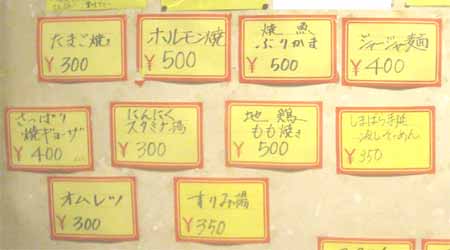 たまご焼
¥300
ホルモン焼
¥500
焼魚
ぶりかま
¥500
ジャージャー麺
¥400
さっぱり
焼ギョーザ
¥400
にんにく
スタミナ湯
¥300
地鶏
もも焼き
¥500
しまばら手延
¥350
オムレツ
¥300
すりみ湯
¥350